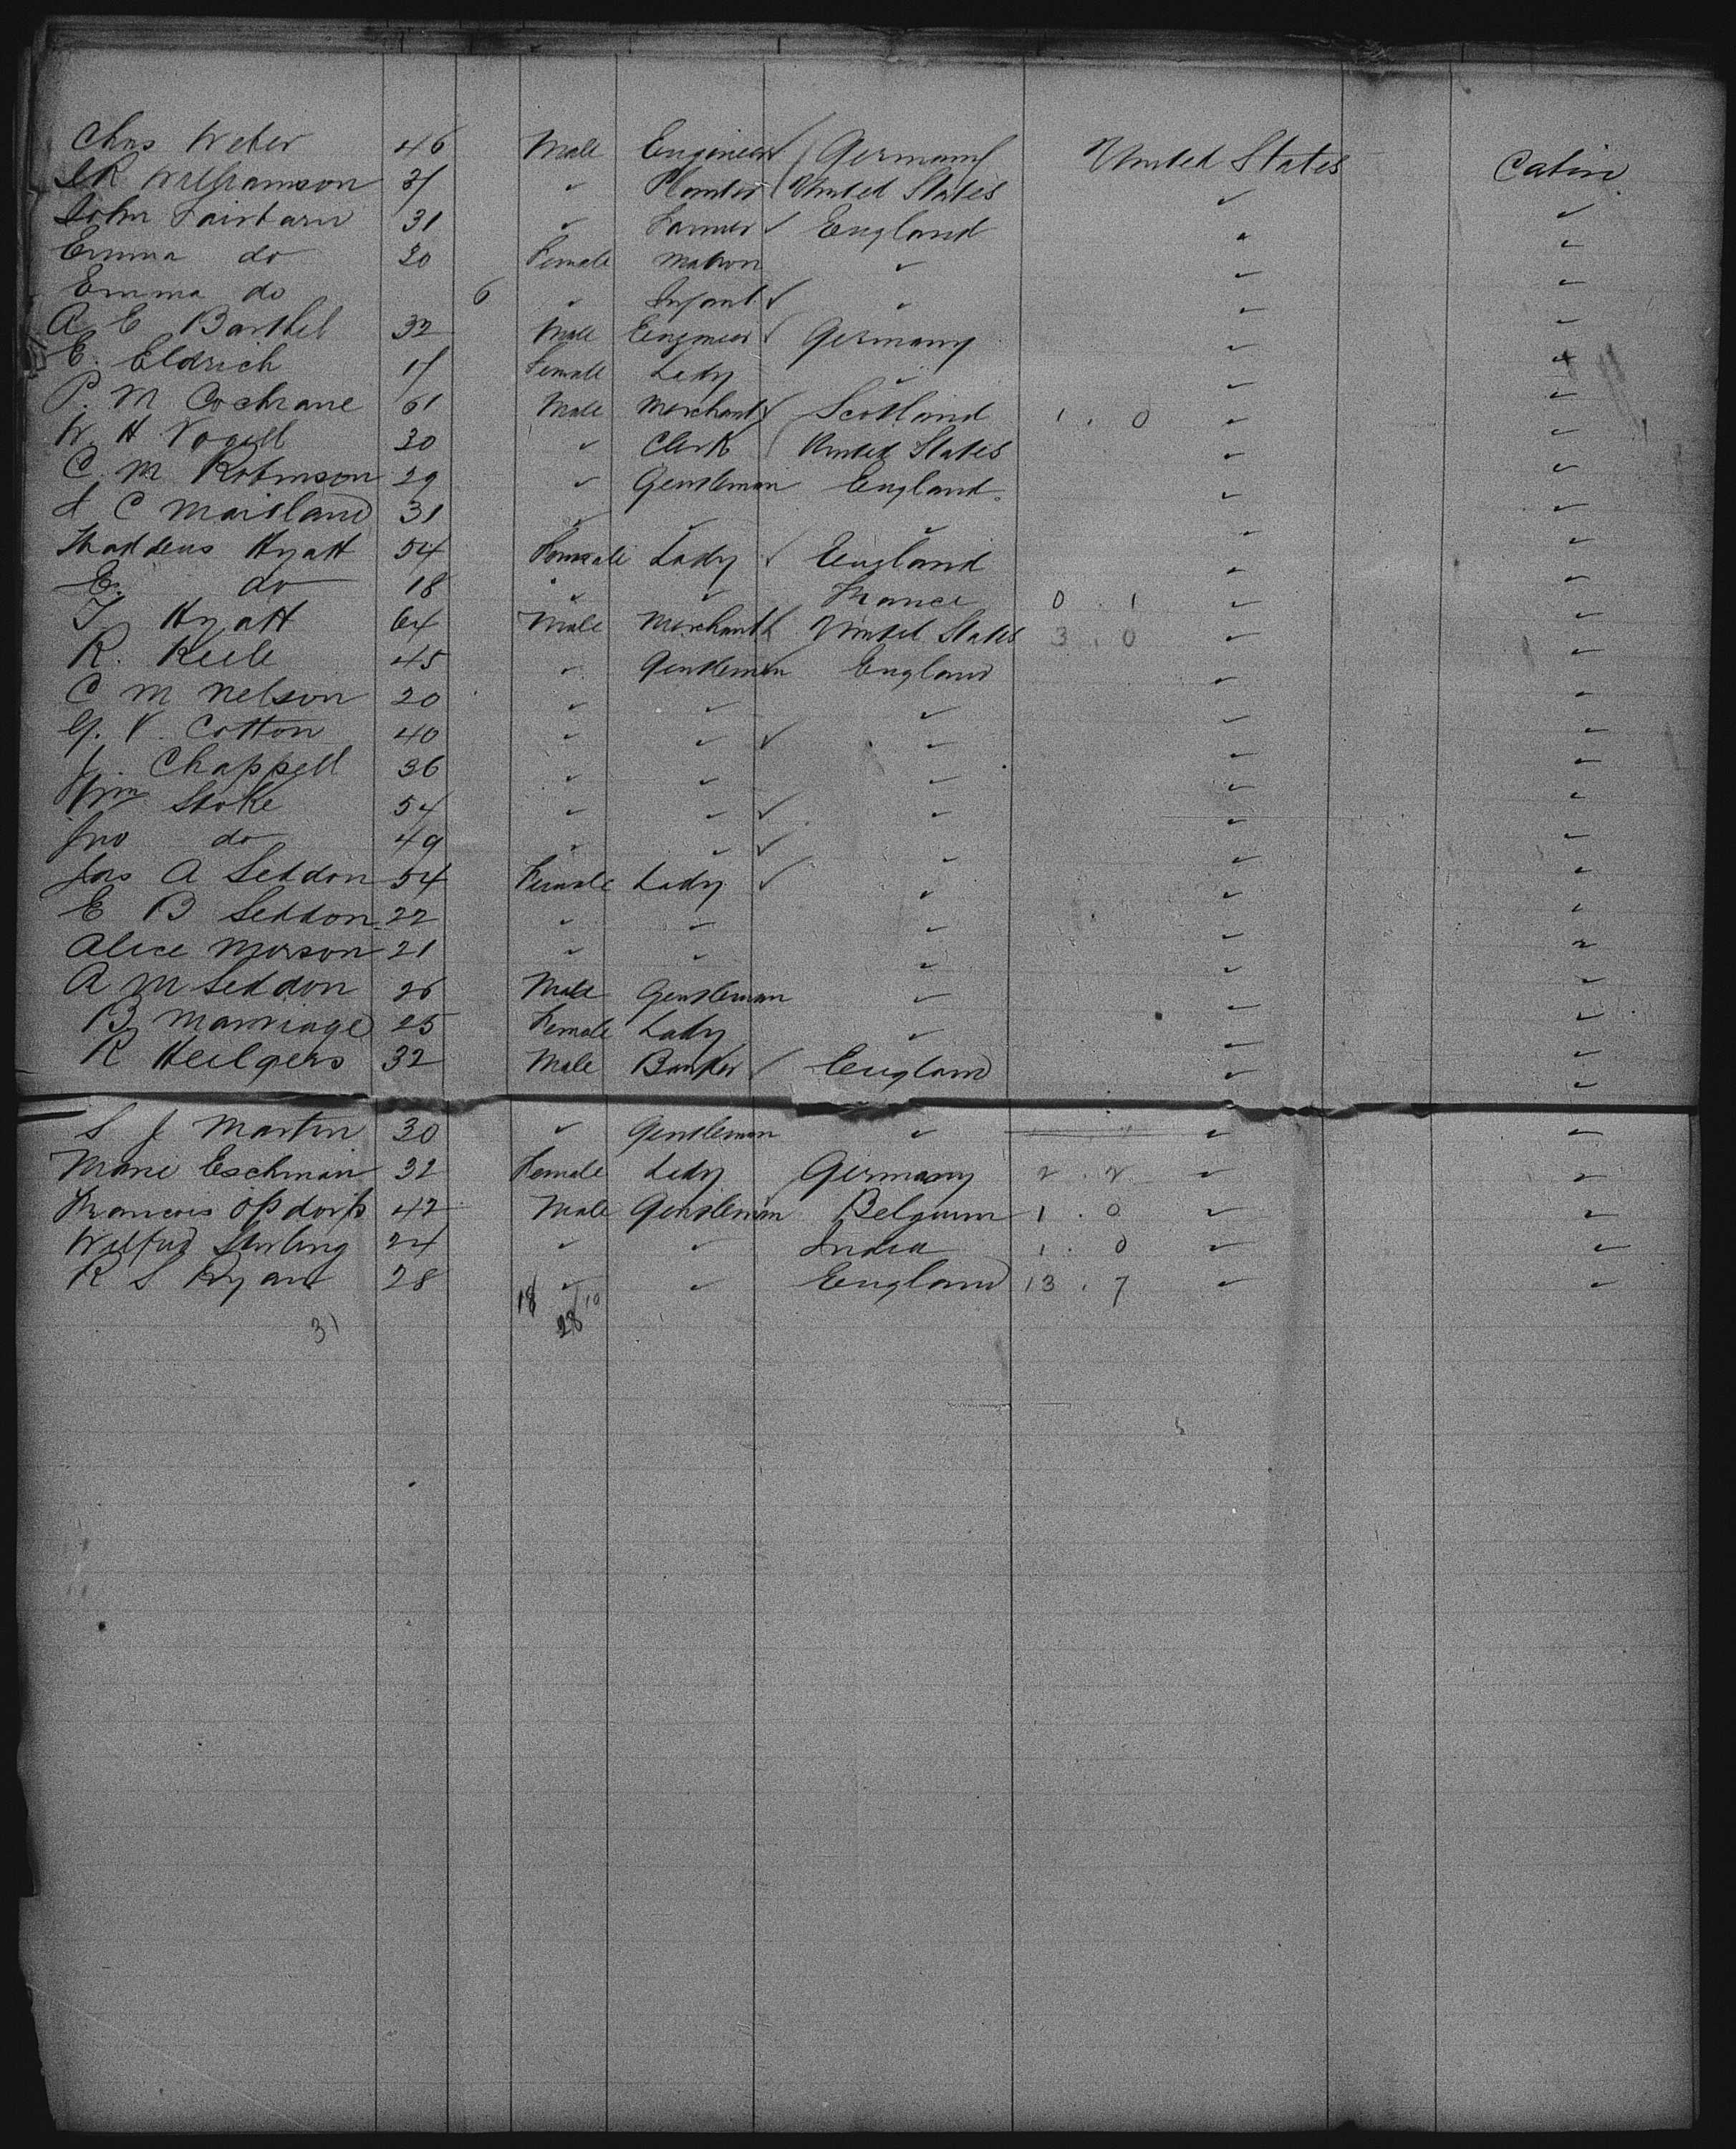 Chas Weber 46 Male Engineer Germany United States Cabin
Williamson ✓ Planter United States ✓ ✓
John Fairbarn 31 ✓ Farmer England ✓ ✓
Emma do 20 Female Matron ✓ ✓ ✓
Emma do 6 ✓ Infant ✓ ✓ ✓
A E Barthel 32 Male Engineer Germany ✓ ✓
E. Eldrich 17 Female Lady ✓ ✓ ✓
P. M Cochrane 61 Male Merchant Scotland 1 . 0 ✓ ✓
W. H Vogell 30 ✓ Clerk United States ✓ ✓
C. M Robinson 29 ✓ Gentleman England ✓ ✓
C Maitland 31 ✓ ✓ ✓ ✓ ✓
Thaddeus Hyatt 54 Female Lady England ✓ ✓
E. do 18 ✓ ✓ France 0 . 1 ✓ ✓
T Hyatt 64 Male Merchant United States 3 . 0 ✓ ✓
R. Keele 45 ✓ Gentleman England ✓ ✓
C M Nelson 20 ✓ ✓ ✓ ✓ ✓
G. V. Cotton 40 ✓ ✓ ✓ ✓ ✓
J. Chappell 36 ✓ ✓ ✓ ✓ ✓
Wm Stoke 54 ✓ ✓ ✓ ✓ ✓
Jno do 49 ✓ ✓ ✓ ✓ ✓
Jas A Seddon 54 Female Lady ✓ ✓ ✓
E B Seddon 22 ✓ ✓ ✓ ✓ ✓
Alice Morson 21 ✓ ✓ ✓ ✓ ✓
A M Seddon 26 Male Gentleman ✓ ✓ ✓
B Marriage 25 Female Lady ✓ ✓ ✓
R Heilgers 32 Male Banker England ✓ ✓
S J Martin 30 ✓ Gentleman ✓ ✓ ✓
Marie Eschman 32 Female Lady Germany 2 . 2 ✓ ✓
Francois Opdorp 42 Male Gentleman Belgium 1 . 0 ✓ ✓
Wilfud Starling 24 ✓ ✓ India 1 . 0 ✓ ✓
R S Ryan 28 ✓ ✓ England 13 . 7 ✓ ✓
18 10
31 28